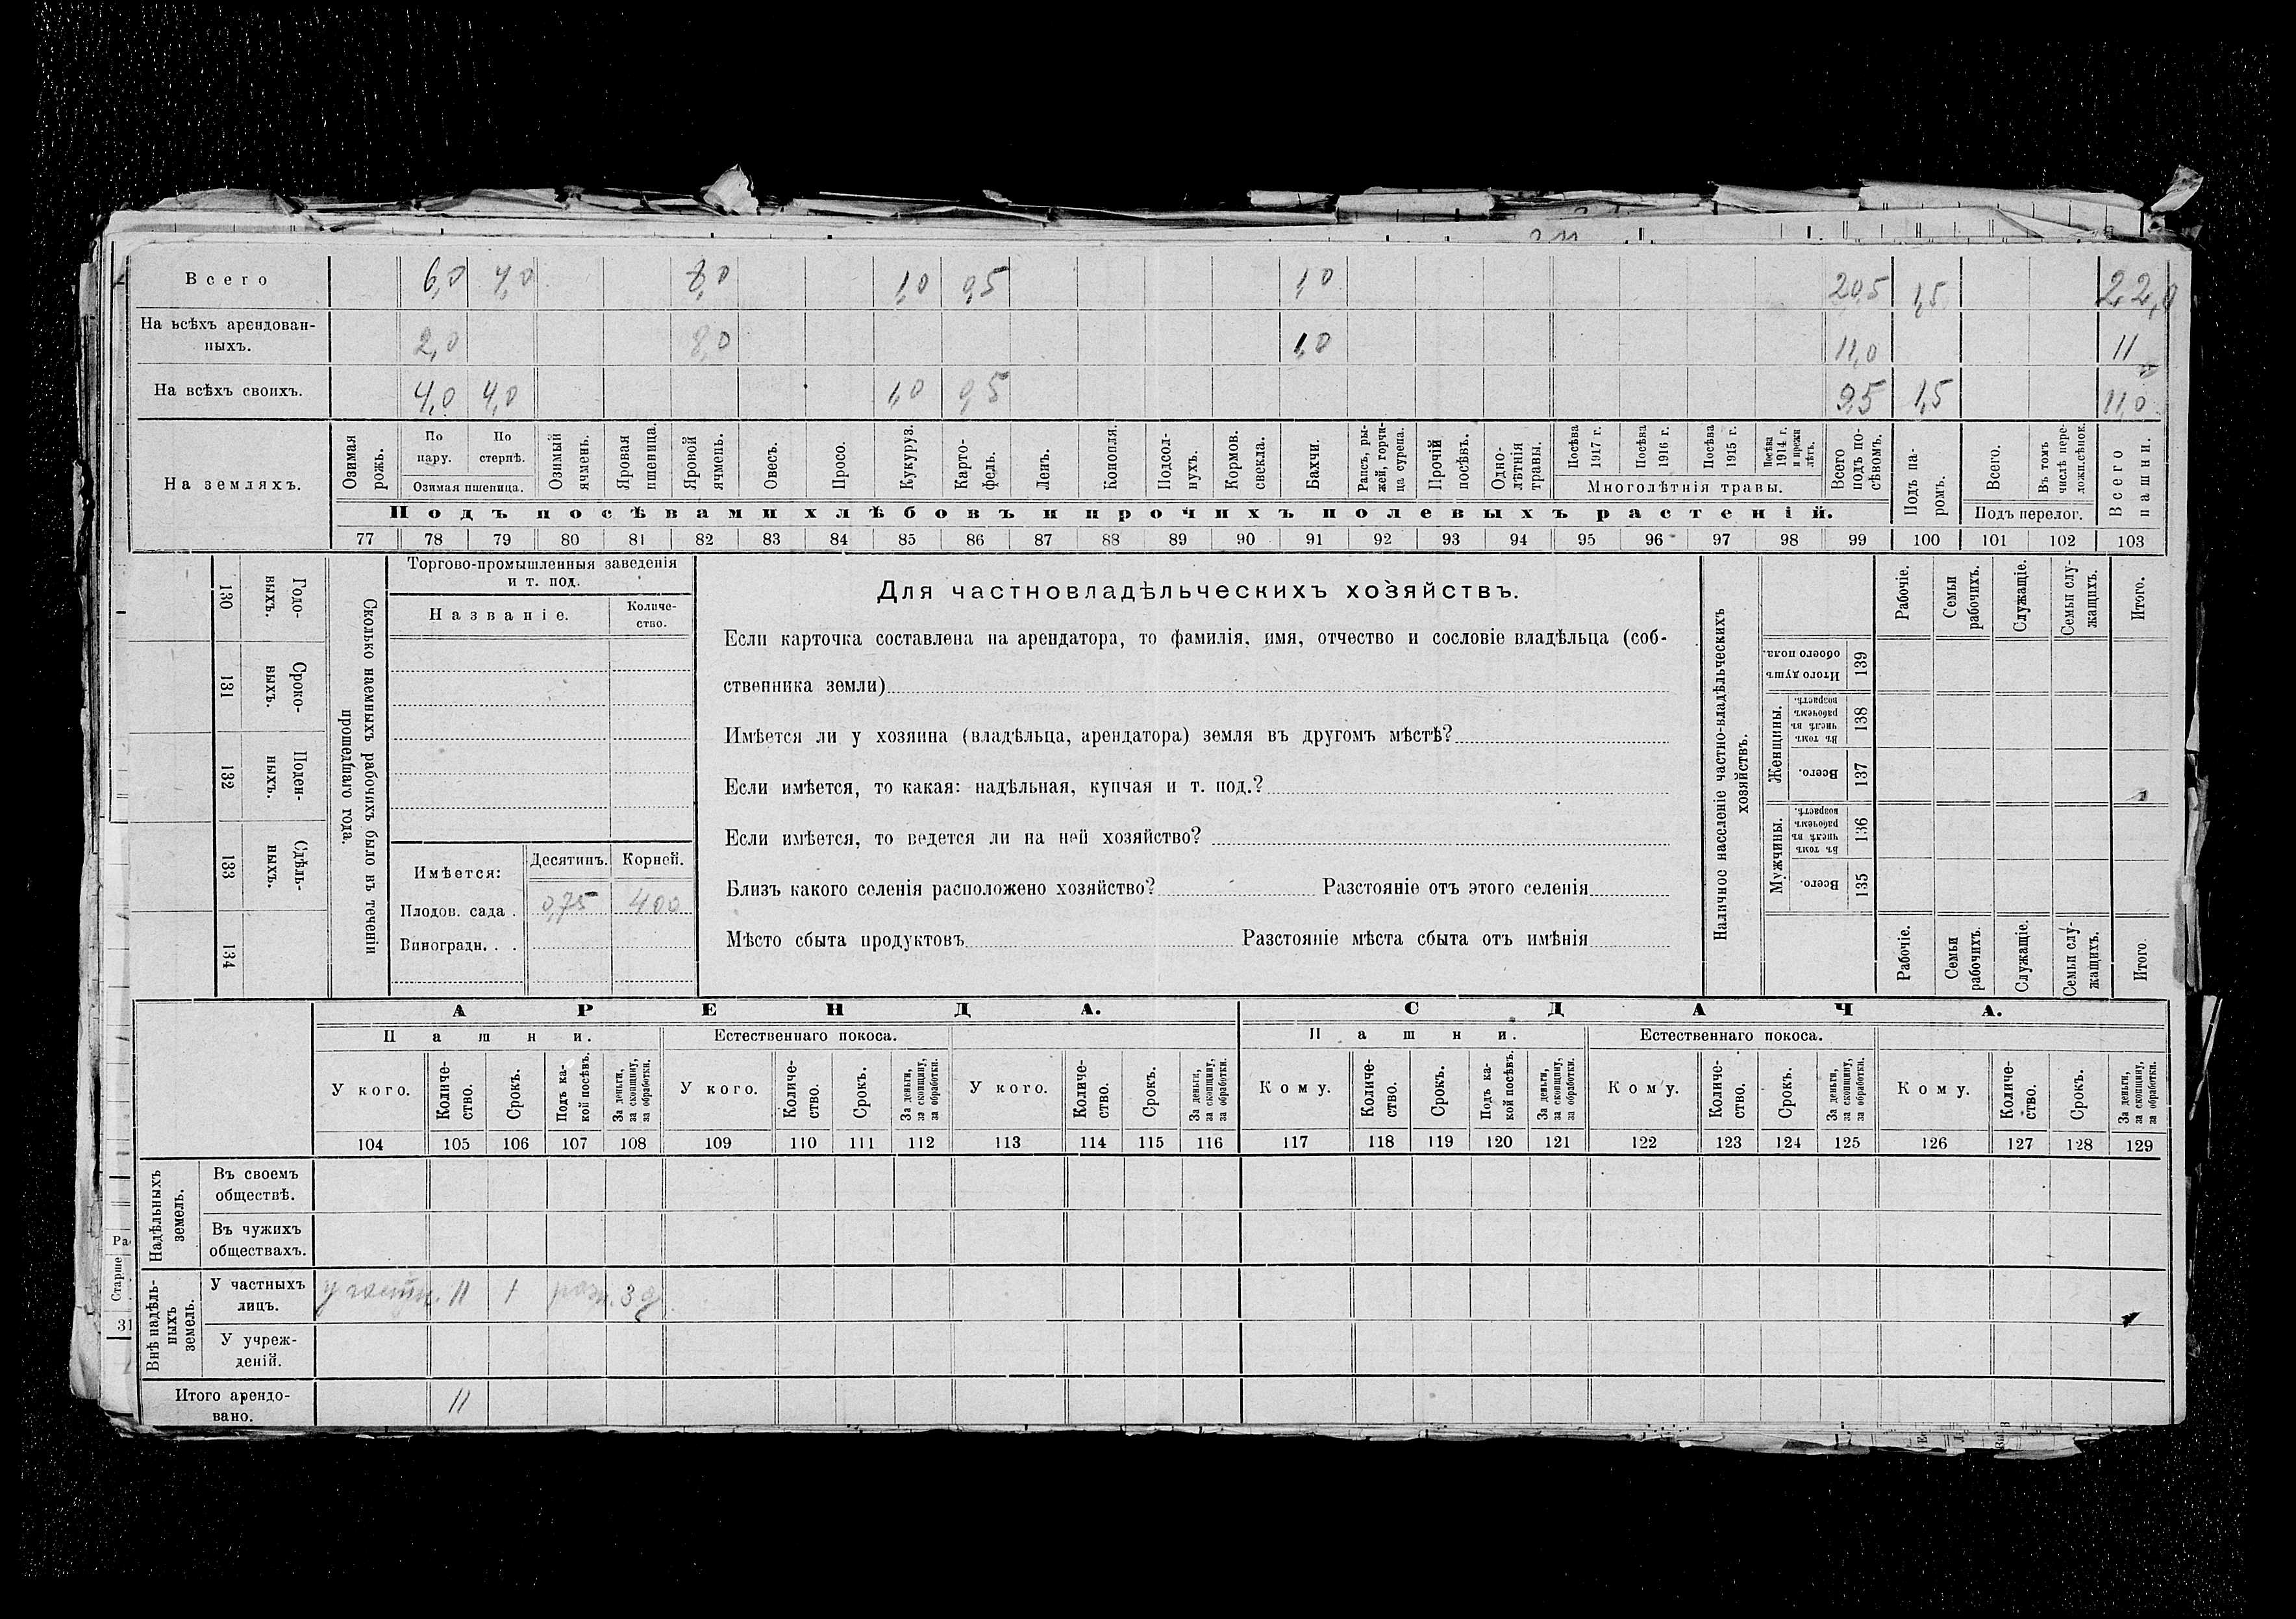 Всего 6,0 4,0 8,0 1,0 0,5 1,0 20,5 1,5 22,0
На всѣхъ арендован-
ныхъ. 2,0 8,0 1,0 11,0 11
На всѣхъ своихъ. 4,0 4,0 1,0 0,5 9,5 1,5 11,0
На земляхъ.
Озимая рожь.
По пару.
По стернѣ.
Озимая пшеница.
Озимый ячмень.
Яровая пшеница.
Яровой ячмень.
Овесъ.
Просо.
Кукуруз.
Карто-
фель.
Ленъ.
Конопля.
Подсол-
нухъ.
Кормов. свекла.
Бахчи.
Рапсъ, ры-
жей, горчи-
ца сурепа.
Прочій посѣвъ.
Одно-
лѣтнія травы.
Посѣва 1917 г.
Посѣва 1916 г.
Посѣва 1915 г.
Посѣва 1914 г. и прежн лѣтъ.
Многолѣтнія травы.
Всего подъ по-
сѣвомъ.
Подъ па-
ромъ.
Всего.
Въ томъ числѣ пере-
ложн.сѣнок.
Подъ перелог.
Всего пашни.
Подъ посѣвами хлѣбовъ и прочихъ полевыхъ растеній.
77 78 79 80 81 82 83 84 85 86 87 88 89 90 91 92 93 94 95 96 97 98 99 100 101 102 103
130 Годо-
выхъ.
131 Сроко-
выхъ.
132 Поден-
ныхъ.
133 Сдѣль-
ныхъ.
134
Сколько наемныхъ рабочихъ было въ теченіи
прошедшаго года.
Торгово-промышленныя заведенія
и т. под.
Названіе. Количе-
ство.
Имѣется: Десятинъ. Корней.
Плодов. сада . 0,75 400
Виноградн. . .
Для частновладѣльческихъ хозяйствъ.
Если карточка составлена на арендатора, то фамилія, имя, отчество и сословіе владѣльца (соб-
ственника земли)
Имѣется ли у хозяина (владѣльца, арендатора) земля въ другомъ мѣстѣ?
Если имѣется, то какая: надѣльная, купчая и т. под.?
Если имѣется, то ведется ли на ней хозяйство?
Близъ какого селенія расположено хозяйство? Разстояніе отъ этого селенія
Мѣсто сбыта продуктовъ Разстояніе мѣста сбыта отъ имѣнія
Наличное населеніе частно-владѣльческихъ
хозяйствъ.
Рабочіе.
Семьи рабочихъ.
Служащіе.
Семьи слу-
жащихъ.
Итого.
Итого душъ обоего пола. 139
Женщины.
Въ томъ числѣ въ рабочемъ возрастѣ. 138
Всего. 137
Мужчины.
Въ томъ числѣ въ рабочемъ возрастѣ. 136
Всего. 135
Рабочіе.
Семьи рабочихъ.
Служащіе.
Семьи слу-
жащихъ.
Итого.
АРЕНДА. СДАЧА.
Пашни. Естественнаго покоса. Пашни. Естественнаго покоса.
У кого. Количе-
ство. Срокъ. Подъ ка-
кой посѣвъ. За деньги, за скопщину, за обработки.
У кого. Количе-
ство. Срокъ. За деньги, за скопщину, за обработки.
У кого. Количе-
ство. Срокъ. За деньги, за скопщину, за обработки.
Кому. Количе-
ство. Срокъ. Подъ ка-
кой посѣвъ. За деньги, за скопщину, за обработки.
Кому. Количе-
ство. Срокъ. За деньги, за скопщину, за обработки.
Кому. Количе-
ство. Срокъ. За деньги, за скопщину, за обработки.
104 105 106 107 108 109 110 111 112 113 114 115 116 117 118 119 120 121 122 123 124 125 126 127 128 129
Надѣльныхъ земель.
Въ своемъ
обществѣ.
Въ чужихъ
обществахъ.
Внѣ надѣль-
ныхъ земель.
У частныхъ
лицъ. 11 1 3 д
У учреж-
деній.
Итого арендо-
вано. 11
Ра
Старше
31